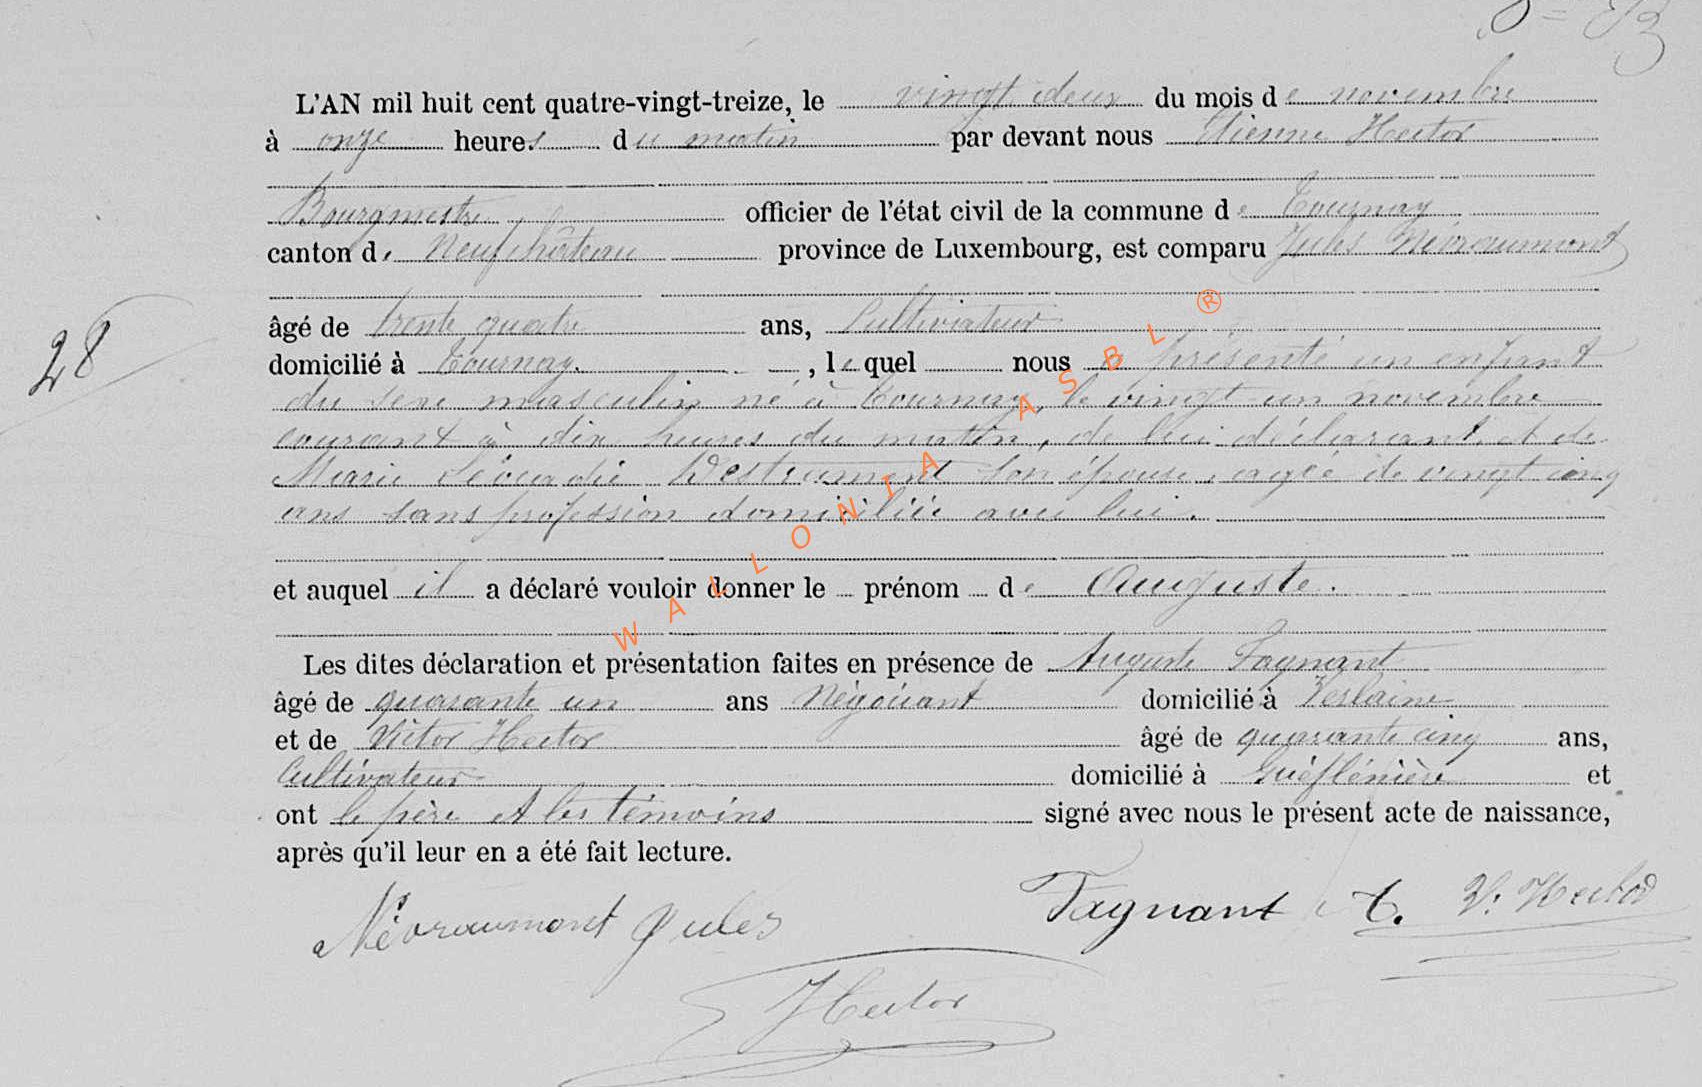 L'AN mil huit cent quatre-vingt-treize, le vingt deux du mois de novembre
à onze heures du matin par devant nous Etienne Hector
Bourgmestre officier de l'état civil de la commune de Tournay
canton de Neufchâteau province de Luxembourg, est comparu Jules Névraumont
âgé de trente quatre ans, Cultivateur
domicilié à Tournay. , lequel nous a présenté un enfant
28
du sexe masculin né à Tournay, le vingt-un novembre
courant à dix heures du matin, de lui déclarant et de
Marie Léocadie son épouse, agée de vingt cinq
ans sans profession domiciliée avec lui.
et auquel il a déclaré vouloir donner le prénom de Auguste.
Les dites déclaration et présentation faites en présence de Auguste Fagnant
âgé de quarante un ans Négociant domicilié à Verlaine
et de Victor Hector âgé de quarante cinq ans,
Cultivateur domicilié à et
ont le père et les témoins signé avec nous le présent acte de naissance,
après qu'il leur en a été fait lecture.
Névraumont Jules Fagnant A. V. Hector
Hector
WALLONIA ASBL ®